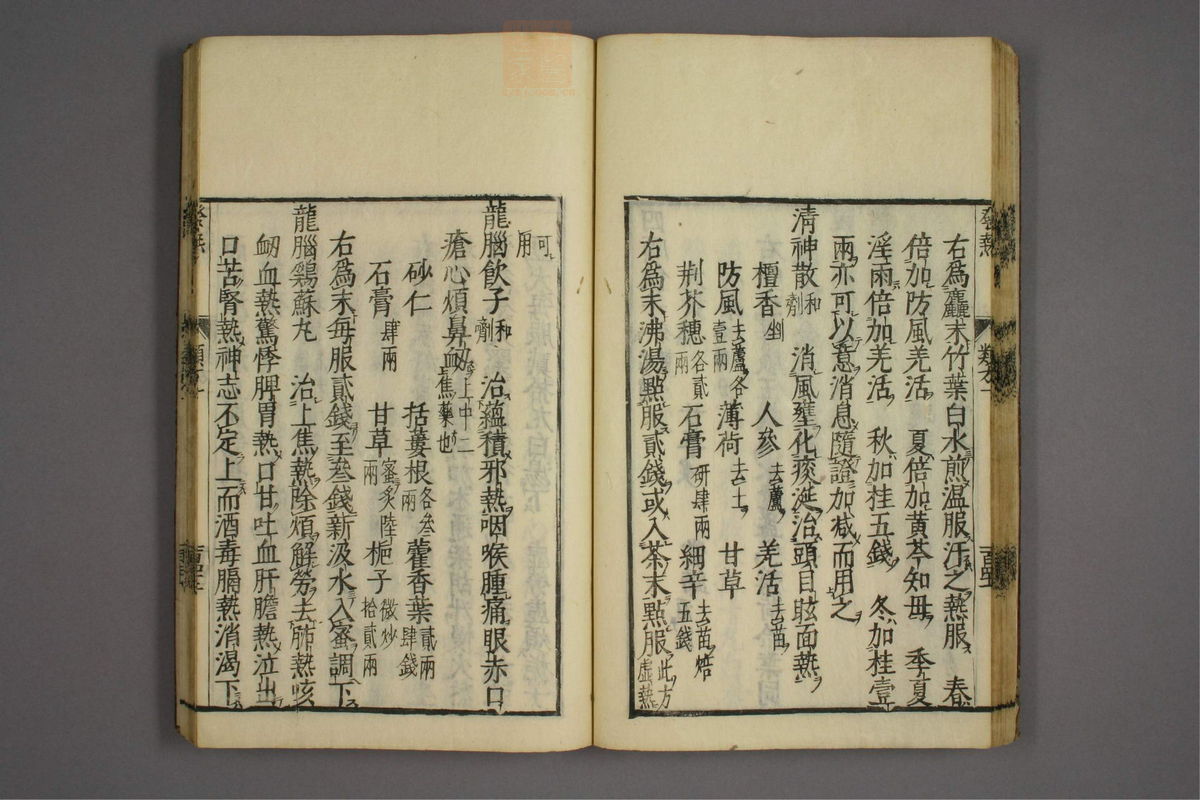 右爲麤末竹葉白水煎温服汗之熱服 春
倍加防風羌活 夏倍加黃芩知母 季夏
淫雨倍加羌活 秋加桂五錢 冬加桂壹
兩亦可以意消息隨證加减而用之
清神散和劑 消風壅化痰涎治頭目眩面熱
檀香剉 人參去蘆 羌活去苗
防風去蘆各壹兩 薄荷去土 甘草
荆芥穗各貳兩 石膏研肆兩 細辛去苗焙五錢
右爲末沸湯點服貳錢或入茶末點服此方虛熱
可用
龍腦飲子和劑 治蘊積邪熱咽喉腫痛眼赤口
瘡心煩鼻衂上中二焦藥也
砂仁 括蔞根各叁兩 藿香葉貳兩肆錢
石膏肆兩 甘草蜜炙陸兩 梔子微炒拾貳兩
右爲末每服貳錢至叁錢新汲水入蜜調下
龍腦鷄蘇丸 治上焦熱除煩解勞去肺熱咳
衂血熱驚悸脾胃熱口甘吐血肝膽熱泣出
口苦腎熱神志不定上而酒毒膈熱消渴下
發熱
類方